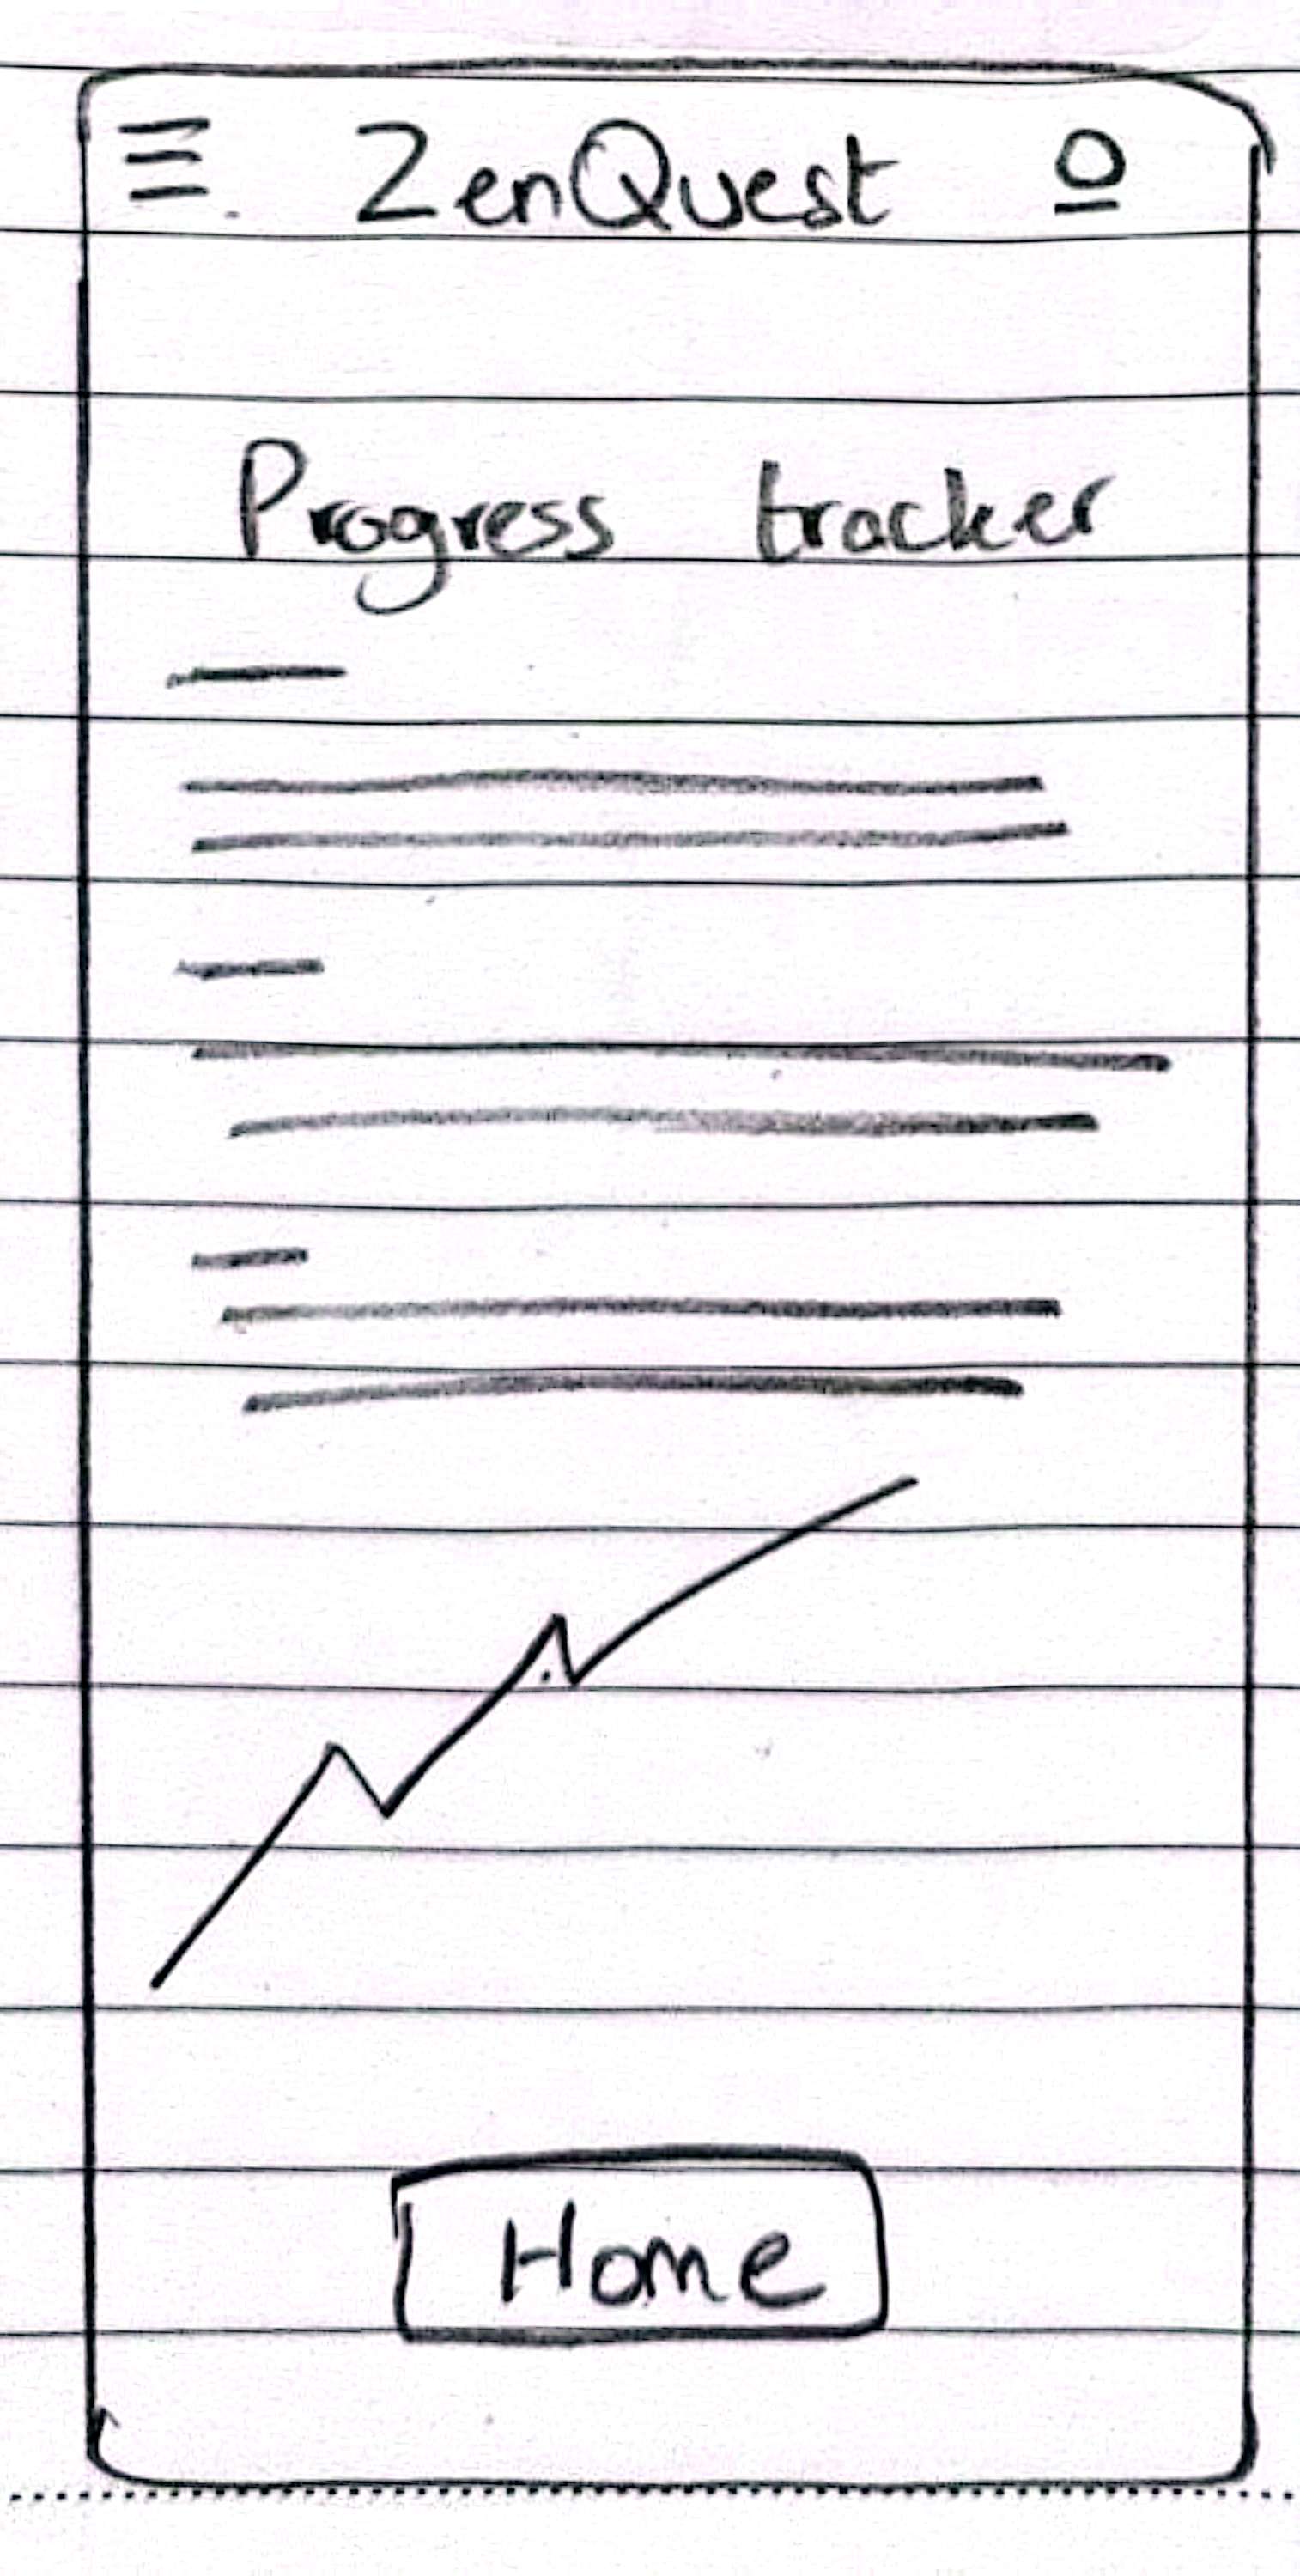 ZenQuest
Progress tracker
Home